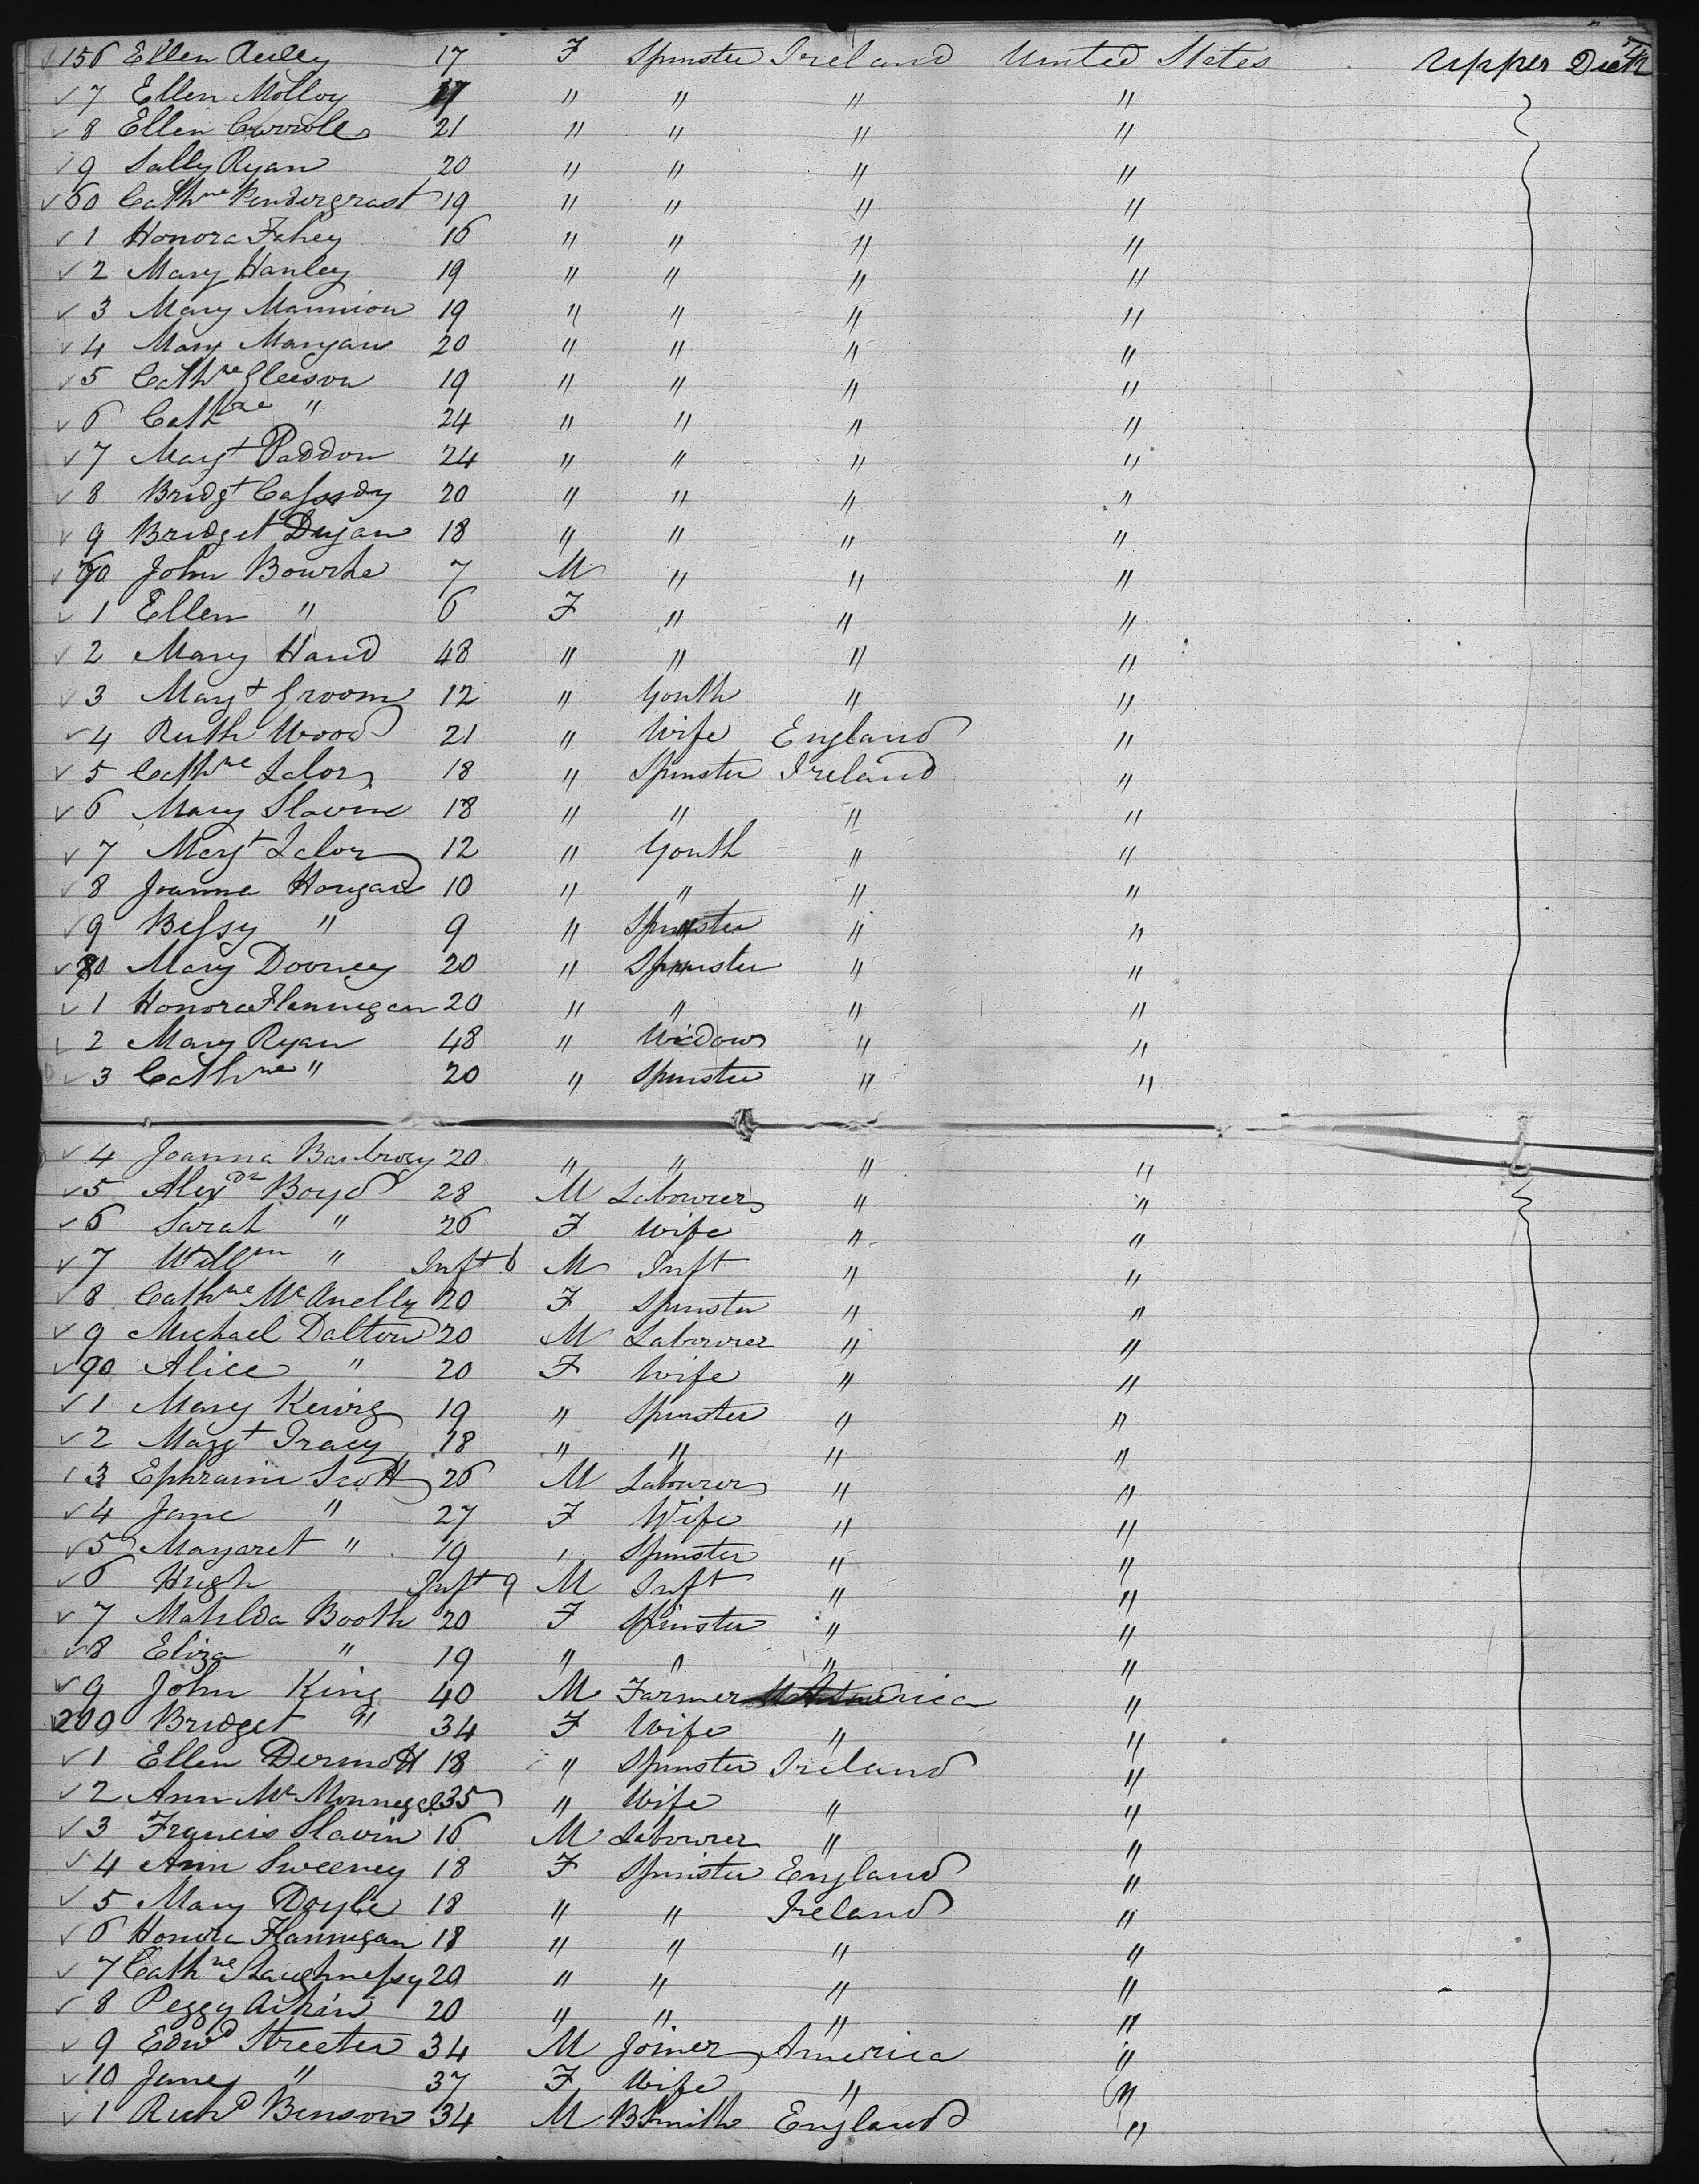 156 Ellen Reilly 17 F Spinster Ireland United States Upper Deck
7 Ellen Molloy 17 " " " "
8 Ellen Carrole 21 " " " "
9 Sally Ryan 20 " " " "
60 Cathne Pendergrast 19 " " " "
1 Honora Fahey 16 " " " "
2 Mary Hanley 19 " " " "
3 Mary Mannion 19 " " " "
4 Mary Mangan 20 " " " "
5 Cathne Gleeson 19 " " " "
6 Cathne " 24 " " " "
7 Margt Paddon 24 " " " "
8 Bridgt Cassidy 20 " " " "
9 Bridget Dujan 18 " " " "
70 John Bourke 7 M " " "
1 Ellen " 6 F " " "
2 Mary Hand 48 " " " "
3 Margt Groom 12 " Youth " "
4 Ruth Wood 21 " Wife England "
5 Cathne Lalor 18 " Spinster Ireland "
6 Mary Slavin 18 " " " "
7 Margt Lalor 12 " Youth " "
8 Joanna Hougan 10 " " " "
9 Bessy " 9 " " "
80 Mary Dooney 20 " Spinster " "
1 Honora Flannegan 20 " " " "
2 Mary Ryan 48 " Widow " "
3 Cathne " 20 " Spinster " "
4 Joanna 20 " " " "
5 Alexdr Boyd 28 M Labourer " "
6 Sarah " 26 F Wife " "
7 Willm " Inft 6 M Inft " "
8 Cathne McAnelly 20 F Spinster " "
9 Michael Dalton 20 M Labourer " "
90 Alice " 20 F Wife " "
1 Mary 19 " Spinster " "
2 Margt Tracy 18 " " " "
3 Ephraim Scott 26 M Labourer " "
4 Jane " 27 F Wife " "
5 Margaret " 19 " Spinster " "
6 Hugh Inft 9 M Inft " "
7 Matilda Booth 20 F Spinster " "
8 Eliza " 19 " " " "
9 John King 40 M Farmer America "
200 Bridget " 34 F Wife " "
1 Ellen Dermott 18 " Spinster Ireland "
2 Ann McMonnegel 35 " Wife " "
3 Francis Slavin 16 M Labourer " "
4 Ann Sweeney 18 F Spinster England "
5 Mary Doyle 18 " " Ireland "
6 Honora Flannegan 18 " " " "
7 Cathne Shaughnessy 20 " " " "
8 Peggy Aitkin 20 " " " "
9 Edwd Streeter 34 M Joiner America "
10 Janey " 37 F Wife " "
1 Richd Benson 34 M BSmith England "